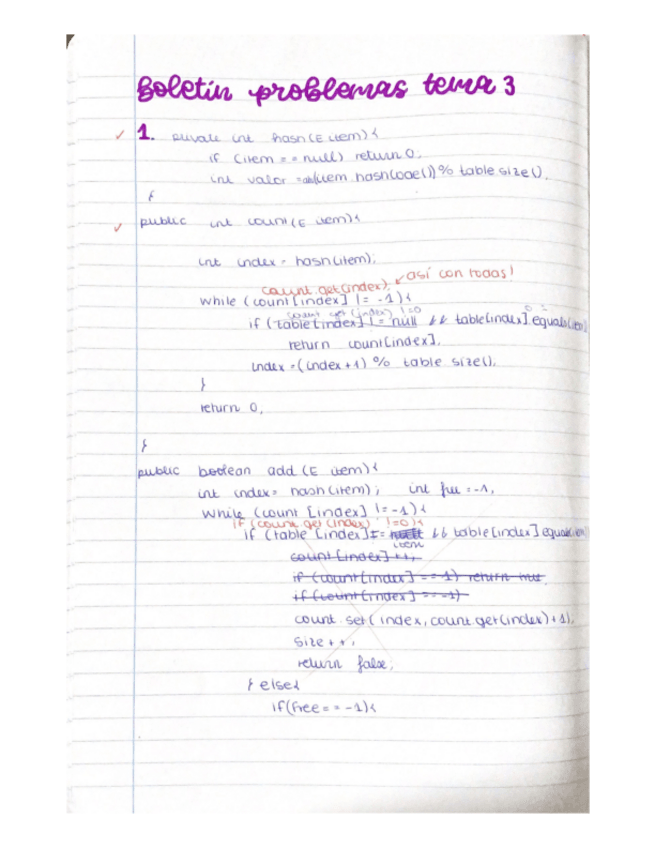 Boletín problemas tema 3
1. private int hash(E item){
if (item == null) return 0;
int valor =abs(item.hashCode()) % table.size();
}
public int count(E item){
int index = hash(item);
count.get(index); así con todas!
while (count[index] != -1){
count.get(index) !=0
if (table[index] != null && table[index].equals(item)
return count[index];
index = (index+1) % table.size();
}
return 0;
}
public boolean add (E item){
int index= hash(item); int free =-1;
while (count [index] != -1){
if (count.get(index) !=0){
if (table [index] == null && table[index].equals(item
item
count[index]++;
if (count[index] == -1) return true;
if (count[index] == -1)
count.set(index, count.get(index)+1);
size++;
return false;
} else{
if(free == -1){